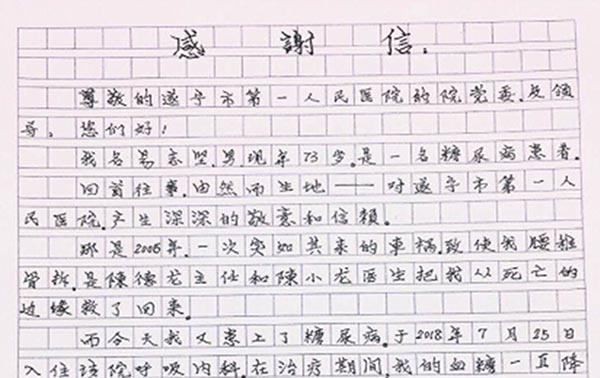 感謝信.
尊敬的遂宁市第一人民医院的院党委.及领
导,您们好!
我名易志坚.男.现年73岁.是一名糖尿病患者.
回首往事.由然而生地——对遂宁市第一人
民医院.产生深深的敬意和信賴.
那是2005年.一次突如其来的車禍.致使我腰椎
骨折.是陳德龙主任和陳小龙医生把我从死亡的
边缘救了回来.
而今天我又患上了糖尿病.于2018年7月25日
入住该院呼吸内科.在治疗期间,我的血糖一直降